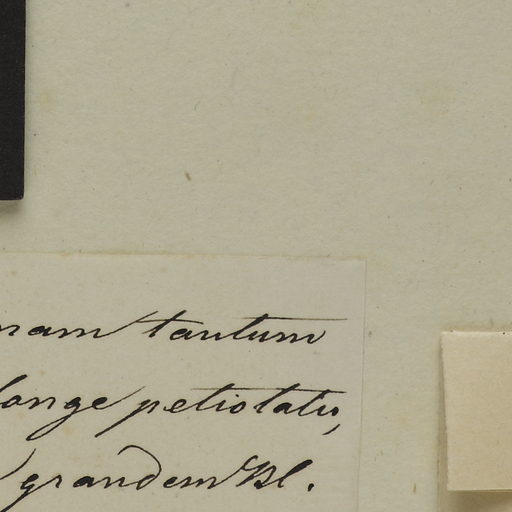 nam tantum
longe petiolatis,
grandem Bl.